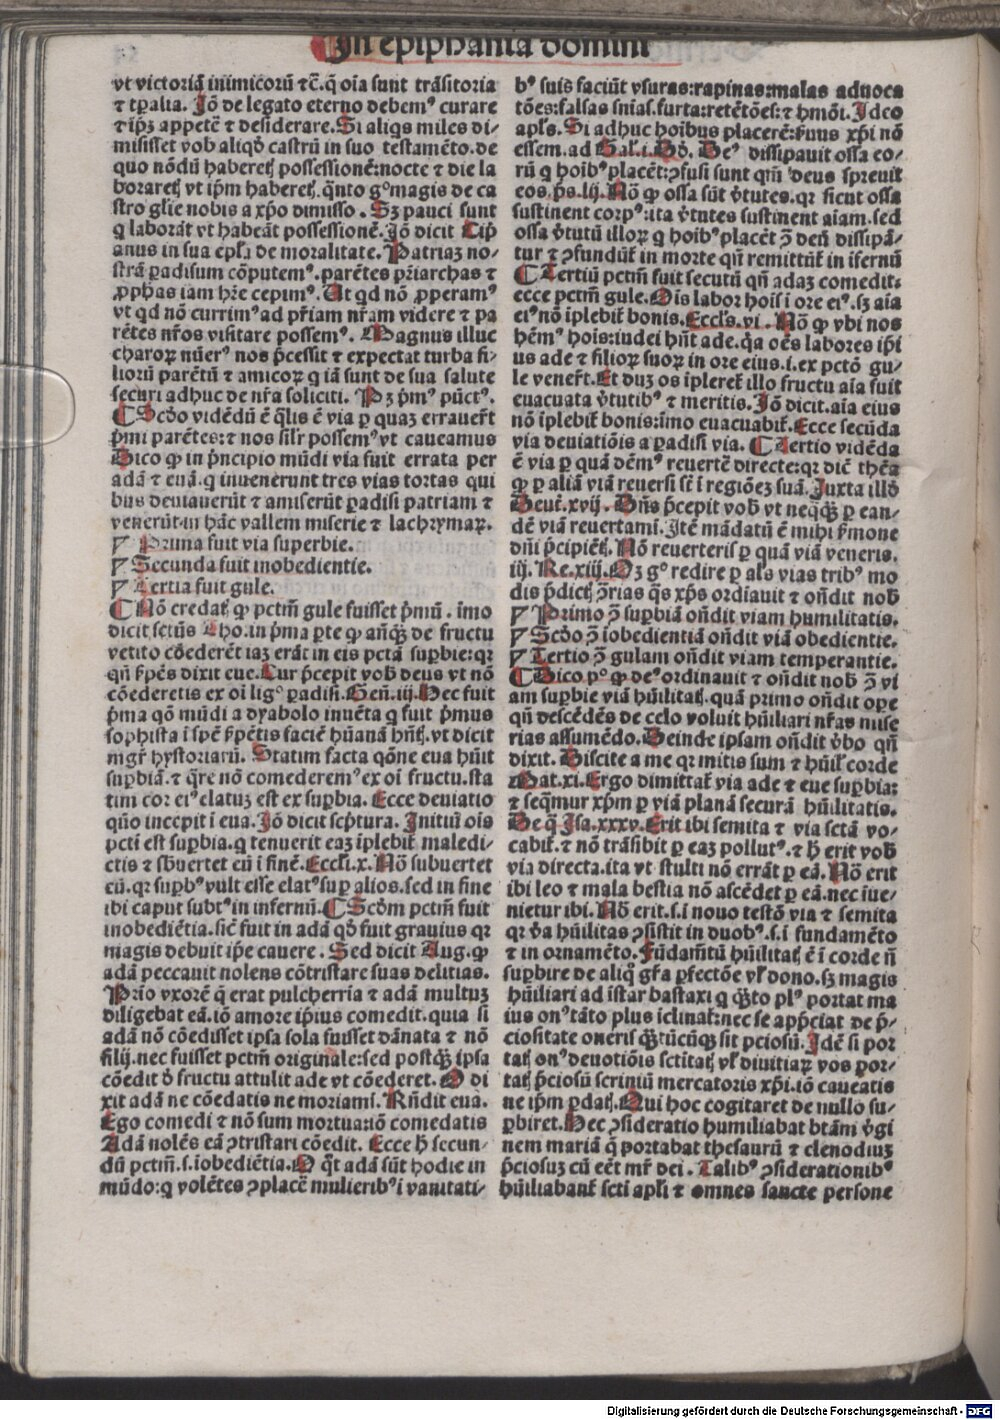 In epiphania domini
vt victoriā inimicorū ⁊c̄.q̄ oīa sunt trāsitoria
⁊ tꝑalia. Iō de legato eterno debemꝰ curare
⁊ ip̄ꝫ appetē ⁊ desiderare. Si aliq̄s miles di⸗
misisset vob̄ aliqd̄ castrū in suo testamēto.de
quo nōdū haberetꝭ possessionē:nocte ⁊ die la
borāretꝭ vt ip̄m haberetꝭ.q̄nto gͦ magis de ca
stro gl̄ie nobis a xp̄o dimisso. Sꝫ pauci sunt
q laborāt vt habeāt possessionē. Iō dicit Cip̄
anus in sua ep̄la de moralitate. Patriaꝫ no⸗
strā ꝑadisum cōputemꝰ.parētes pr̄iarchas ⁊
ꝓphas iam hr̄e cepimꝰ. Ut qd nō ꝓperamꝰ
vt qd nō currimꝰ ad pr̄iam nr̄am videre ⁊ pa
rētes nr̄os visitare possemꝰ. Magnus illuc
charoꝝ nūerꝰ nos p̄cessit ⁊ expectat turba fi⸗
liorū parētū ⁊ amicoꝝ q iā sunt de sua salute
securi adhuc de nr̄a soliciti. Pꝫ p̄mꝰ pūctꝰ.
¶ Scd̄o vidēdū ē q̄lis ē via ꝑ quaꝫ erraver̄t
p̄mi parētes:⁊ nos sil̄r possemꝰ vt caueamus
Dico ꝙ in p̄ncipio mūdi via fuit errata per
adā ⁊ euā.q inuenerunt tres vias tortas qui
bus deuiauerūt ⁊ amiserūt ꝑadisi patriam ⁊
venerūt in hāc vallem miserie ⁊ lachrymaꝝ.
Prima fuit via superbie.
Secunda fuit inobedientie.
Tertia fuit gule.
¶ Nō credatꝭ ꝙ pctm̄ gule fuisset p̄mū. imo
dicit sctūs Tho.in p̄ma ꝑte ꝙ an̄qꝫ de fructu
vetito cōederēt iaꝫ erāt in eis pctā suꝑbie:qꝛ
qn̄ ẜpēs dixit eue. Cur p̄cepit vob̄ deus vt nō
cōederetis ex oi ligͦ ꝑadisi. Gen̄.iij. Hec fuit
p̄ma qō mūdi a dyabolo inuēta q fuit p̄mus
sophista ī spē ẜpētis faciē hūanā hn̄tꝭ.vt dicit
mgr̄ hystoriarū. Statim facta qōne eua hūit
suꝑbiā.⁊ q̄re nō comederemꝰ ex oi fructu.sta
tim cor eiꝰ elatuꝫ est ex suꝑbia. Ecce deuiatio
quō incepit ī eua. Iō dicit scp̄tura. Initiū ois
pcti est suꝑbia.q tenuerit eaꝫ īplebit̄ maledi⸗
ctis ⁊ sb̄uertet eū ī finē. Eccli.x. Nō subuertet
eū.qꝛ suꝑbꝰ vult esse elatꝰ suꝑ alios.sed in fine
ibi caput subtꝰ in infernū. ¶ Scd̄m pctm̄ fuit
inobediētia.sic̄ fuit in adā qd̄ fuit grauius qꝛ
magis debuit ip̄e cauere. Sed dicit Aug.ꝙ
adā peccauit nolens cōtristare suas delitias.
Prīo vxorē q̄ erat pulcherrīa ⁊ adā multuꝫ
diligebat eā.iō amore ip̄ius comedit.quia si
adā nō cōedisset ipsa sola fuisset dānata ⁊ nō
filij.nec fuisset pctm̄ originale:sed postqꝫ ipsa
cōedit d̄ fructu attulit ade vt cōederet. O di
xit adā ne cōedatis ne moriamī. Rn̄dit eua.
Ego comedi ⁊ nō sum mortua:iō comedatis
Adā nolēs eā ꝯtristari cōedit. Ecce hꝭ secun⸗
dū pctm̄.s.īobediētia. O q̄t adā sūt hodie in
mūdo:q volētes ꝯplacē mulieribꝰ ī vanitati⸗
bꝰ suis faciūt vsuras:rapinas:malas aduoca
tōes:falsas snīas.furta:retētōes:⁊ hmōi. Ideo
apl̄s. Si adhuc hoībus placerē:ẜuus xp̄i nō
essem.ad Gal.i. Dd̄. Deꝰ dissipauit ossa eo⸗
rū q hoibꝰ placēt:ꝯfusi sunt qm̄ deus spreuit
eos.ps.lij. Nō ꝙ ossa sūt v̄tutes.qꝛ sicut ossa
sustinent corpꝰ:ita v̄tutes sustinent aiam.sed
ossa v̄tutū illoꝝ q hoibꝰ placēt ꝯ̄ deū dissipā⸗
tur ⁊ ꝯfundūt̄ in morte qn̄ remittūt̄ in īfernū
¶ Tertiū pctm̄ fuit secutū qn̄ adaꝫ comedit:
ecce pctm̄ gule. Ois labor hoīs ī ore eiꝰ.sꝫ aīa
eiꝰ nō īplebit̄ bonis. Eccl̄s.vi. Nō ꝙ vbi nos
hēmꝰ hoīs:iudei hn̄t ade.q̄a oēs labores ip̄i
us ade ⁊ filioꝝ suoꝝ in ore eius.i.ex pctō gu⸗
le vener̄t. Et duꝫ os īpleret̄ illo fructu aīa fuit
euacuata v̄tutibꝰ ⁊ meritis. Iō dicit.aīa eius
nō īplebit̄ bonis:īmo euacuabit̄. Ecce secūda
via deuiatiōis a ꝑadisi via. ¶ Tertio vidēda
ē via ꝑ quā dēmꝰ reuertē directe:qꝛ dic̄ thēa
ꝙ ꝑ aliā viā reuersi st̄ ī regiōeꝫ suā. Iuxta illd̄
Deut.xvij. Dn̄s p̄cepit vob̄ vt neqꝗꝫ ꝑ ean⸗
dē viā reuertamī. Itē mādatū ē mihi ẜmone
dn̄i p̄cipiētꝭ. Nō reuerteris ꝑ quā viā veneris.
iij. Re.xiij. Oꝫ gͦ redire ꝑ al̄s vias tribꝰ mo
dis p̄dictꝭ ꝯ̄rias q̄s xp̄s ordiauit ⁊ on̄dit nob̄
Primo ꝯ̄ suꝑbiā on̄dit viam humilitatis.
Scd̄o ꝯ̄ īobedientiā on̄dit viā obedientie.
Tertio ꝯ̄ gulam on̄dit viam temperantie.
¶ Dico pͦ ꝙ deꝰ ordinauit ⁊ on̄dit nob̄ ꝯ̄ vi
am suꝑbie viā hūilitatꝭ.quā primo on̄dit ope
qn̄ descēdēs de celo voluit hūiliari nr̄as mise
rias assumēdo. Deinde ipsam on̄dit v̄bo qn̄
dixit. Discite a me qꝛ mitis sum ⁊ hūil̄ corde
Mat.xi. Ergo dimittat̄ via ade ⁊ eue suꝑbia:
⁊ seq̄mur xp̄m ꝑ viā planā securā hūilitatis.
De q̄ Isa.xxxv. Erit ibi semita ⁊ via sctā vo⸗
cabit̄.⁊ nō trāsibit ꝑ eaꝫ pollutꝰ.⁊ hꝭ erit vob̄
via directa.ita vt stulti nō errāt ꝑ eā. Nō erit
ibi leo ⁊ mala bestia nō ascēdet ꝑ eā.nec iue⸗
nietur ibi. Nō erit.s.i nouo testō via ⁊ semita
qꝛ v̄a hūilitas ꝯsistit in duobꝰ.s.ī fundamēto
⁊ in ornamēto. Fūdam̄tū hūilitatꝭ ē ī corde n̄
suꝑbire de aliq̄ gr̄a ꝑfectōe vl̓ dono.sꝫ magis
hūiliari ad īstar bastaxi q qꝫto plꝰ portat ma
ius onꝰ tāto plus īclinat̄:nec se app̄ciat de p̄⸗
ciositate oneris qꝫtūcūqꝫ sit pciosū. Idē si por
tatꝭ onꝰ deuotiōis sctitatꝭ vl̓ diuitiaꝝ vos ꝑor⸗
tatꝭ p̄ciosū scriniū mercatoris xp̄i.iō caueatis
ne ip̄m ꝑdatꝭ. Qui hoc cogitaret de nullo su⸗
ꝑbiret. Hec ꝯsideratio humiliabat btām v̄gi
nem mariā q̄ portabat thesaurū ⁊ clenodiuꝫ
p̄ciosuꝫ cū eēt mr̄ dei. Talibꝰ ꝯsiderationibꝰ
hūiliabant̄ scti apl̄i ⁊ omnes sancte persone
Digitalisierung gefördert durch die Deutsche Forschungsgemeinschaft - DFG